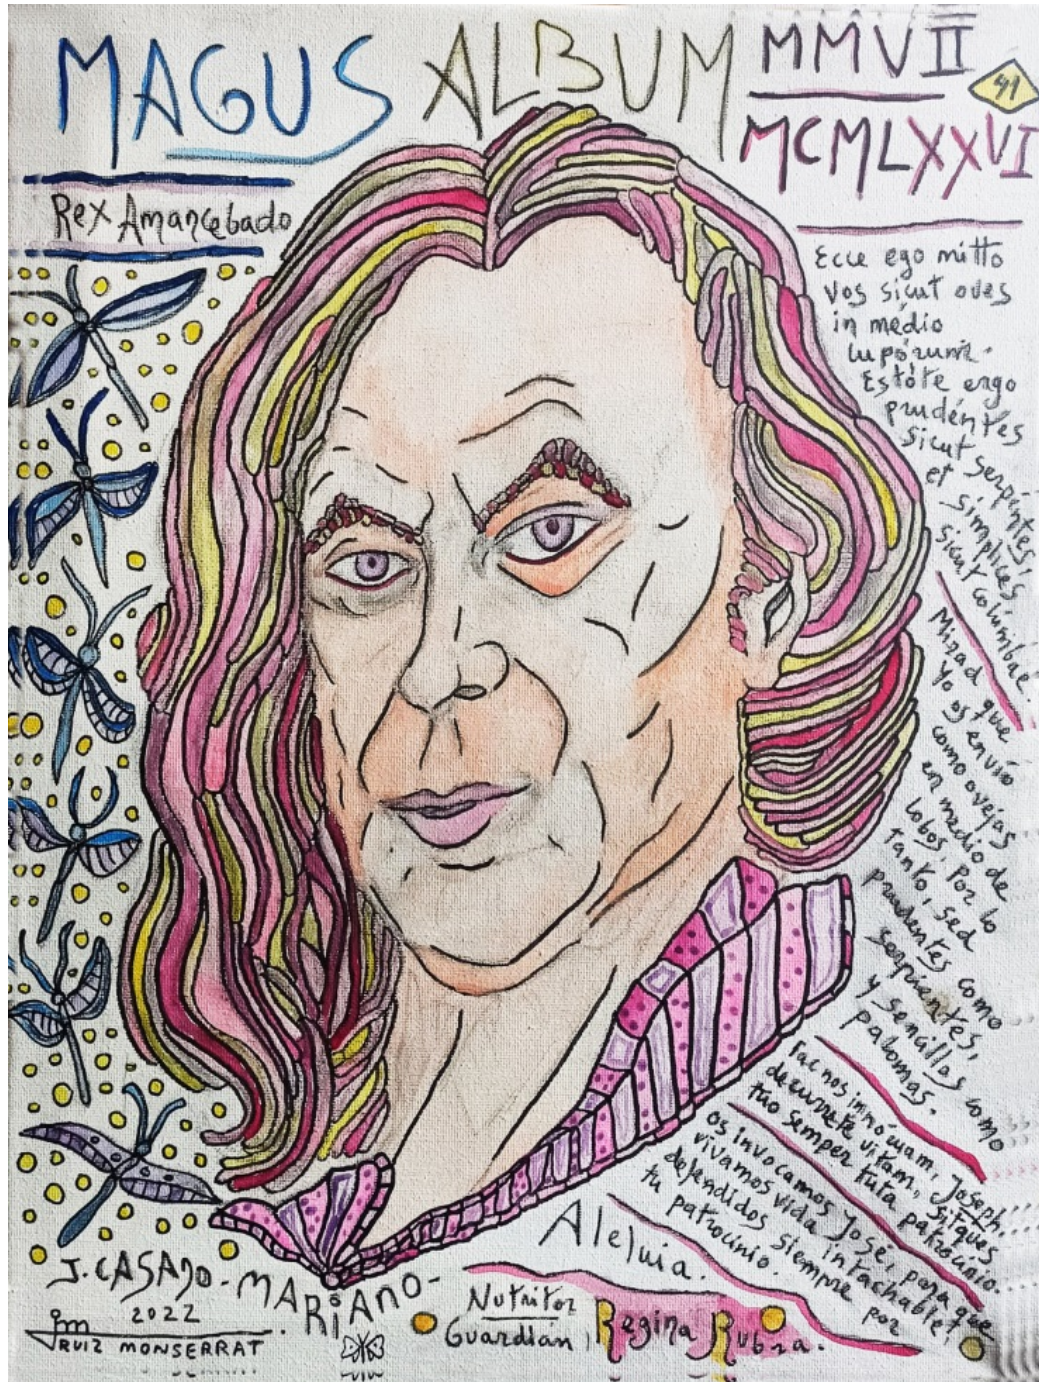 MAGUS ALBUM MMVII
41
MCMLXXVI
Rex Amancebado
Ecce ego mitto
vos sicut oves
in médio
lupórum.
Estóte ergo
prudéntes
sicut serpéntes,
et símplices
sicut colúmbae.
Mirad que
Yo os envío
como ovejas
en medio de
lobos. Por lo
tanto, sed
prudentes como
serpientes,
y sencillas como
palomas.
Fac nos innócuam, Joseph,
decúrrere vitam, Sitque
tuo semper tuta patrocinio.
os invocamos José, para que
vivamos vida intachable,
defendidos siempre por
tu patrocinio.
Aleluia.
J. CASADO - MARIANO -
2022
jm
RUIZ MONSERRAT.
Nutritor
Guardián, Regina Rubra.